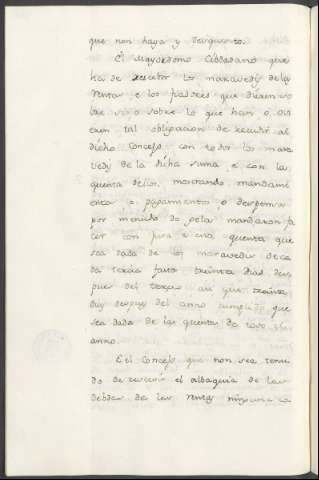 que non haya y desquento.
El mayordomo Ciudadano que
ha de recebir los maravedis de las
rentas, e los padrones que dieren
o sobre lo que han o
tal obligacion de recudir al
dicho Concejo con todos los mara
vedis de la dicha suma, e con la
quenta dellos, mostrando mandami
entos e pagamentos o despensa
por menudo de pelas mandaron fa
cer con jura e esta quenta que
sea dada de los maravedis de ca
da tercio fasta treinta dias des
pues del tercio asi que treinta
dias despues del anno cumplido que
sea dada de las quentas de todo
anno.
E el Concejo que non sea tenu
do de recebir el albaquia de las
debdas de las rentas ninguna